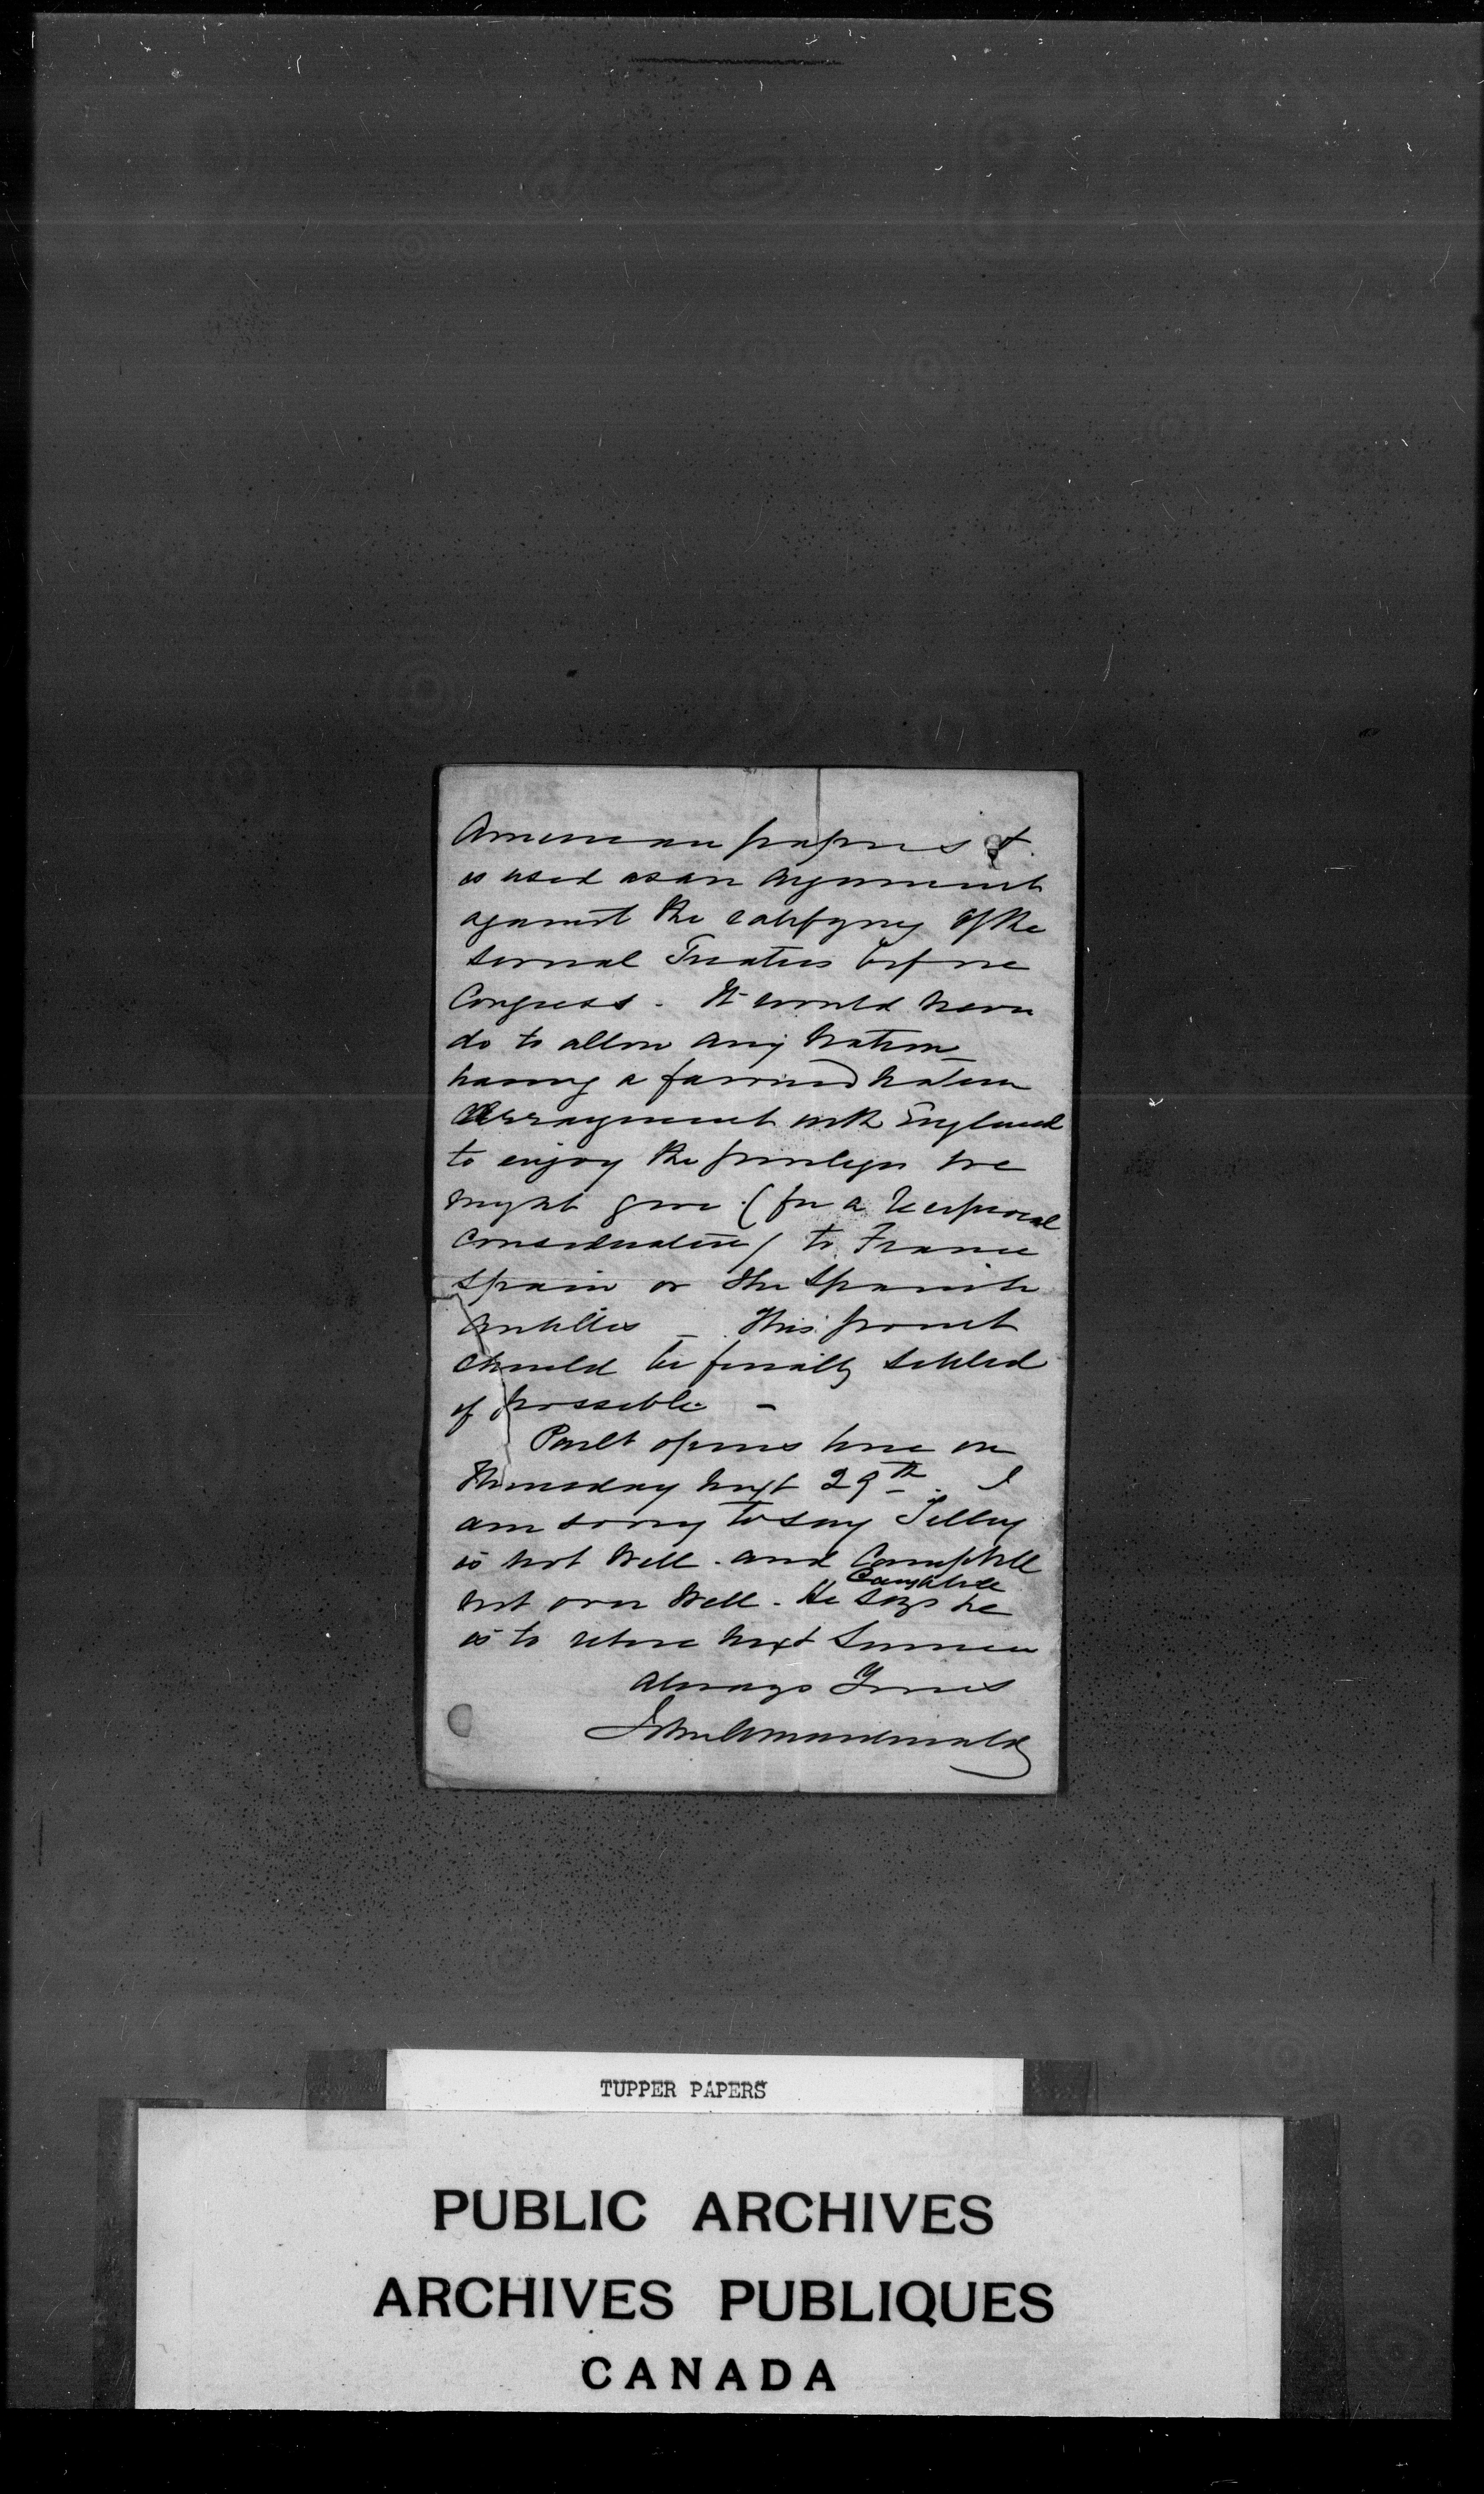 American papers &
is used as an argument
against the ratifying of the
several Treaties before
Congress. It would never
do to allow any nation
having a favored nation
arrangement with England
to enjoy the privileges we
might give (for a reciprocal
consideration) to France
Spain or the Spanish
Antilles — This point
should be finally settled
if possible —
Parlt opens here on
Thursday next 29th. I
am sorry to say Tilley
is not well. and Campbell
Campbell
not over well. He says he
is to retire next summer
Always Yours
John A Macdonald
TUPPER PAPERS
PUBLIC ARCHIVES
ARCHIVES PUBLIQUES
CANADA